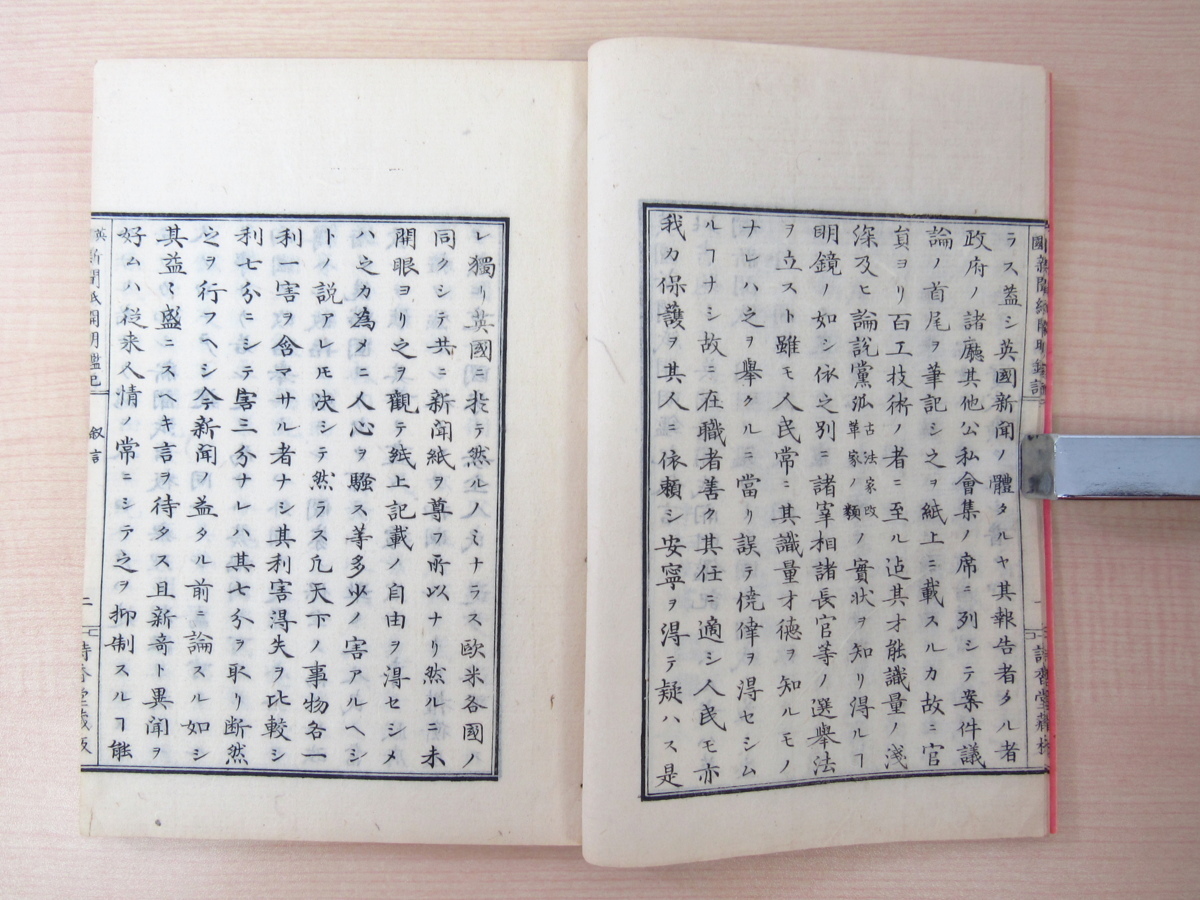 ラス蓋シ英國新聞ノ體タルヤ其報告者タル者
政府ノ諸廳其他公私會集ノ席ニ列シテ案件議
論ノ首尾ヲ筆記シ之ヲ紙上ニ載スルカ故ニ官
貟ヨリ百工技術ノ者ニ至ル迠其才能識量ノ淺
深及ヒ論說黨派古法家改革家ノ類ノ實状ヲ知リ得ルヿ
明鏡ノ如シ依之別ニ諸宰相諸長官等ノ選舉法
ヲ立スト雖モ人民常ニ其識量才徳ヲ知ルモノ
ナレハ之ヲ舉クルニ當リ誤テ僥倖ヲ得セシム
ルヿナシ故ニ在職者善ク其任ニ適シ人民モ亦
我カ保護ヲ其人ニ依頼シ安寧ヲ得テ疑ハス是
レ獨リ英國ニ於テ然ルノミナラス欧米各國ノ
同クシテ共ニ新聞紙ヲ尊フ所以ナリ然ルニ未
開眼ヨリ之ヲ觀テ紙上記載ノ自由ヲ得セシメ
ハ之カ為メニ人心ヲ騒ス等多少ノ害アルヘシ
トノ説アレ𪜈决シテ然ラス凡天下ノ事物各一
利一害ヲ含マサル者ナシ其利害得失ヲ比較シ
利七分ニシテ害三分ナレハ其七分ヲ取リ断然
之ヲ行フヘシ今新聞ノ益タル前ニ論スル如シ
其益〻盛ニスヘキ言ヲ待タス且新竒ト異聞ヲ
好ムハ従来人情ノ常ニシテ之ヲ抑制スルヿ能
英 新聞紙開明鑑記
叙言
二